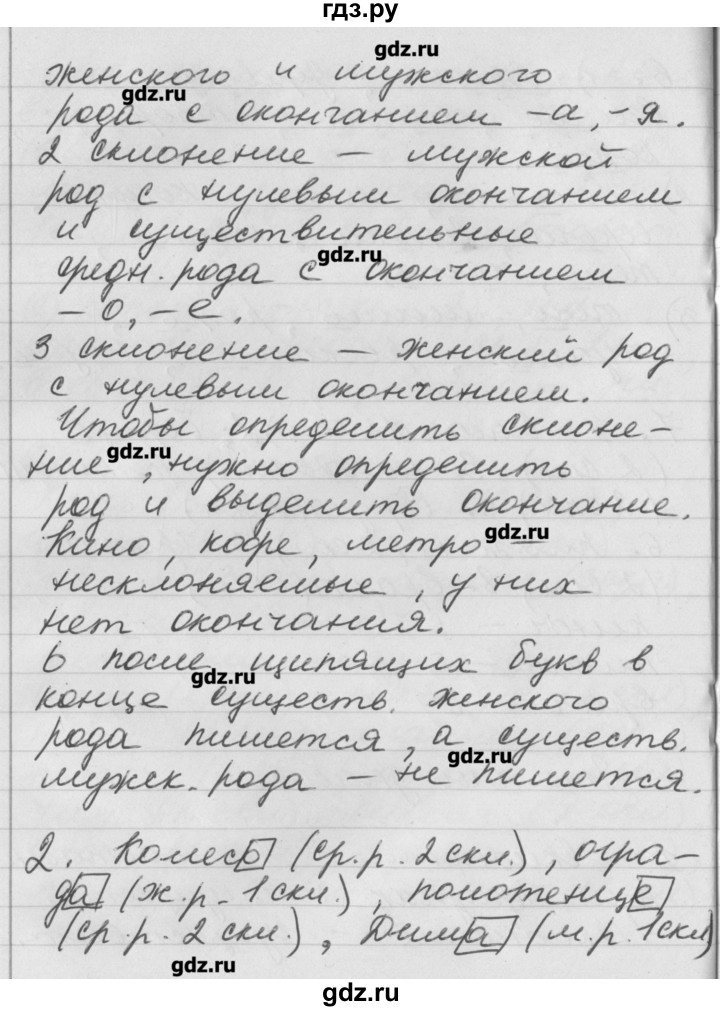 гдз.ру
gdz.ru
женского и мужского
gdz.ru
рода с окончанием -а, -я.
2 склонение – мужской
род с нулевым окончанием
и существительные
gdz.ru
средн. рода с окончанием
- о, - е.
3 склонение – женский род
с нулевым окончанием.
Чтобы определить склоне-
gdz.ru
ние, нужно определить
род и выделить окончание.
gdz.ru
Кино, кофе, метро –
несклоняемые, у них
нет окончания.
ь после шипящих букв в
gdz.ru
конце существ. женского
рода пишется, а существ.
gdz.ru
мужск. рода – не пишется.
2. Колесо (ср.р. 2 скл.), огра-
да (ж.р. - 1 скл.), полотенце
(ср.р. - 2 скл.), Дима (м.р. 1скл)
gdz.ru
gdz.ru